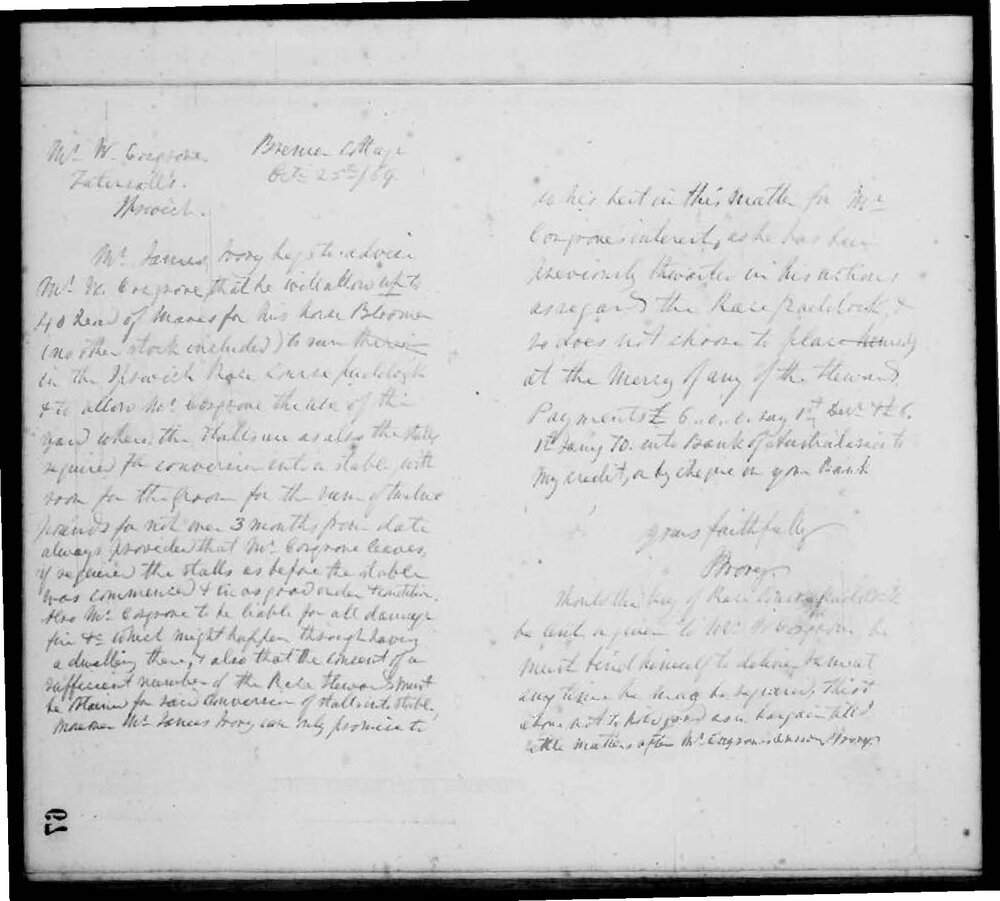 Mr. W. Cosgrove.
Tatersall's.
Ipswich.
Bremer Cottage
Octr 25th /69
Mr. James Ivory begs to advise
Mr. W. Cosgrove, that he will allow up to
40 head of Mares for his horse Bloomer
(no other stock included) to run therein
in the Ipswich Race Course paddock
& to allow Mr. Cosgrove the use of the
yard where the Stalls are as also the stalls
required for conversion into a stable with
room for the Groom for the sum of twelve
pounds for not over 3 months from date
always provided that Mr. Cosgrove leaves,
if required the stalls as before the stable
was commenced & in as good order & condition.
Also Mr. Cosgrove to be liable for all damage
fire &c which might happen through having
a dwelling there, & also that the consent of a
sufficient number of the Race Stewards must
be obtained for said conversion of stalls into stable,
moreover Mr. James Ivory can only promise to
do his best in this matter for Mr
Cosgrove's interest, as he has been
previously thwarted in his actions
as regards the Race paddock, &
so does not choose to place
at the mercy of any of the Stewards
Payments £ 6..0..0. say 1st Decr. & £6.
1st Jany 70. into Bank of Australasia to
my credit, or by cheque on your Bank
yours faithfully
J Ivory.
Should the key of Race Course paddock
be lent or given to Mr. W Cosgrove, he
must bind himself to deliver same at
any time he may be required, this
above not to hold good as a bargain till I
settle matters after Mr. Cosgrove's answer J Ivory.
67